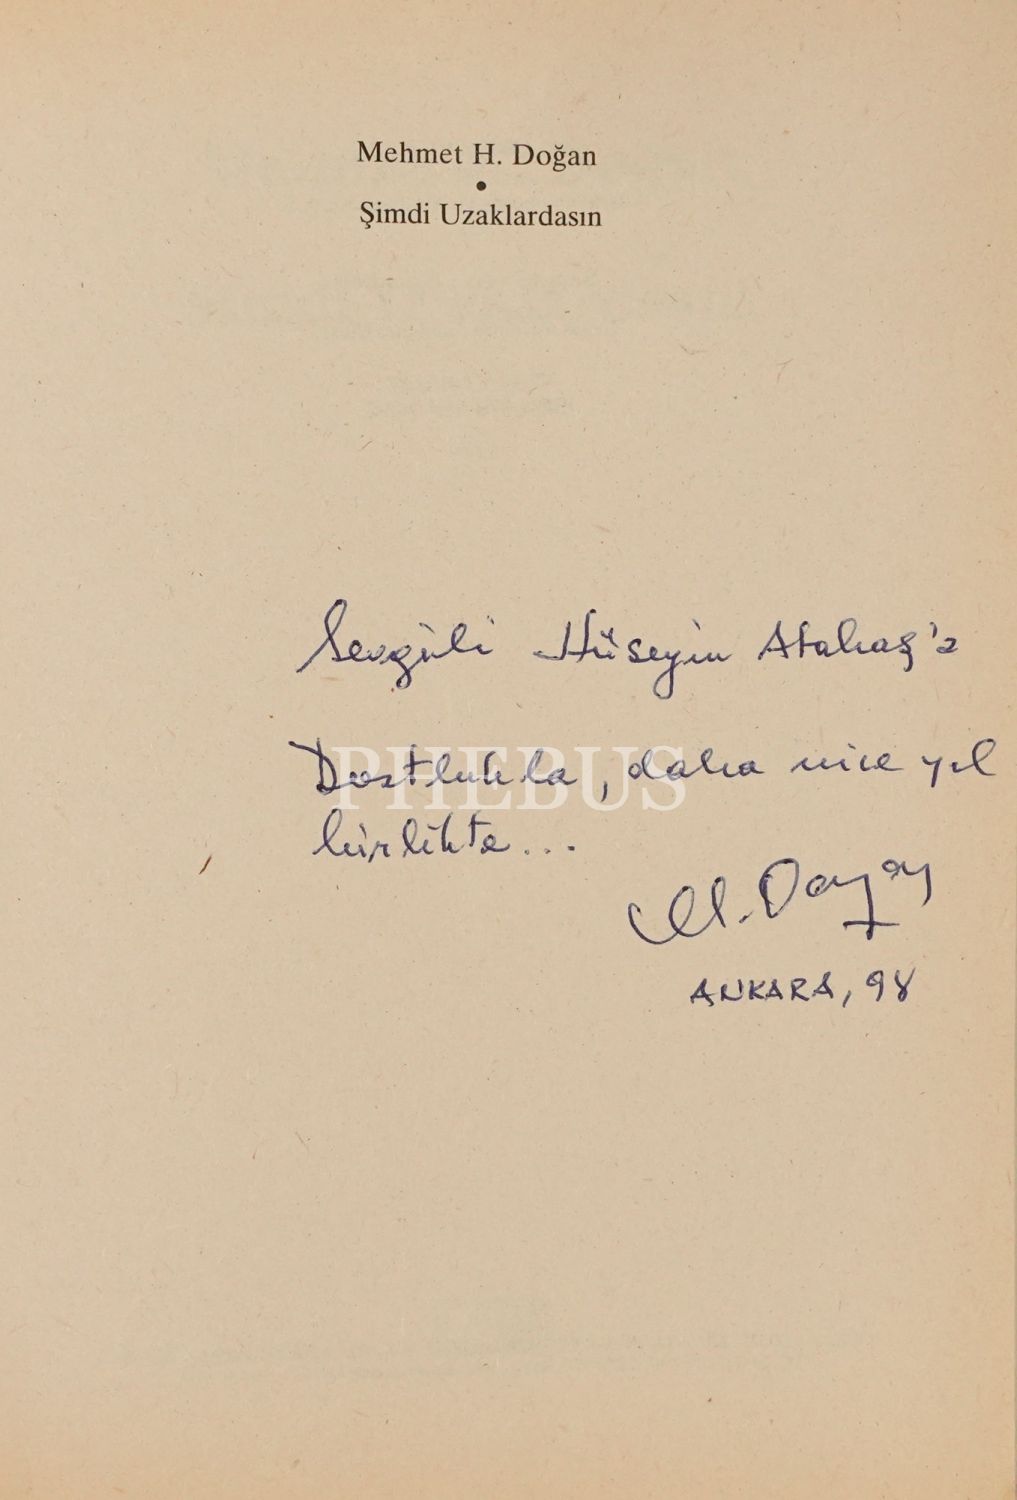 Mehmet H. Doğan
•
Şimdi Uzaklardasın
Sevgili Hüseyin Atabaş'a
Dostlukla, daha nice yıl
birlikte...
PHEBUS
M. Doğan
ANKARA, 98